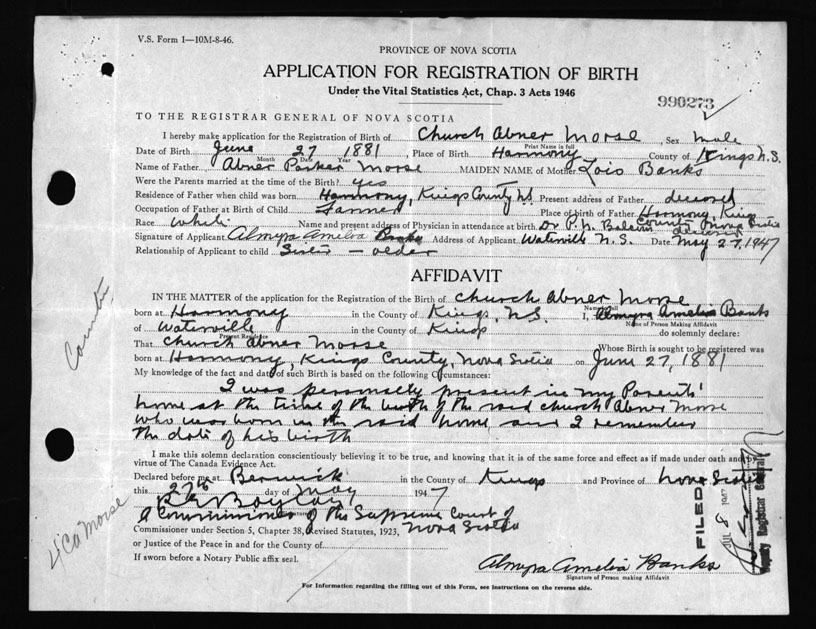 V.S. Form 1—10M-8-46.
PROVINCE OF NOVA SCOTIA
APPLICATION FOR REGISTRATION OF BIRTH
Under the Vital Statistics Act, Chap. 3 Acts 1946
990273
TO THE REGISTRAR GENERAL OF NOVA SCOTIA
I hereby make application for the Registration of Birth of Church Abner Morse Sex male
Print Name in full
Date of Birth June 27 1881, Place of Birth Harmony County of Kings N.S.
Month Date Year
Name of Father Abner Parker Morse MAIDEN NAME of Mother Lois Banks
Were the Parents married at the time of the Birth? yes
Residence of Father when child was born Harmony, Kings County N.S. Present address of Father deceased
Occupation of Father at Birth of Child Farmer Place of birth of Father Harmony, Kings County Nova Scotia
Race white Name and present address of Physician in attendance at birth Dr P. N. deceased
Signature of Applicant Almyra Amelia Banks Address of Applicant Waterville N.S. Date May 27, 1947
Relationship of Applicant to child Sister — older
AFFIDAVIT
IN THE MATTER of the application for the Registration of the Birth of Church Abner Morse
born at Harmony in the County of Kings, N.S. I, Almyra Amelia Banks
Name in full
Name of Person Making Affidavit
of Waterville in the County of Kings do solemnly declare:
Present Residence
That Church Abner Morse Whose Birth is sought to be registered was
born at Harmony, Kings County, Nova Scotia on June 27, 1881
My knowledge of the fact and date of such Birth is based on the following Circumstances:
I was personally present in my Parents'
home at the time of the birth of the said Church Abner Morse
who was born in the said home and I remember
the date of his birth
I make this solemn declaration conscientiously believing it to be true, and knowing that it is of the same force and effect as if made under oath and by
virtue of The Canada Evidence Act.
Declared before me at Berwick in the County of Kings and Province of Nova Scotia
this 27th day of May 1947
A Commissioner of the Supreme Court of
Nova Scotia
Commissioner under Section 5, Chapter 38, Revised Statutes, 1923,
or Justice of the Peace in and for the County of
If sworn before a Notary Public affix seal.
Almyra Amelia Banks
Signature of Person making Affidavit
For Information regarding the filling out of this Form, see instructions on the reverse side.
FILED
8 1947
Deputy Registrar General
Morse